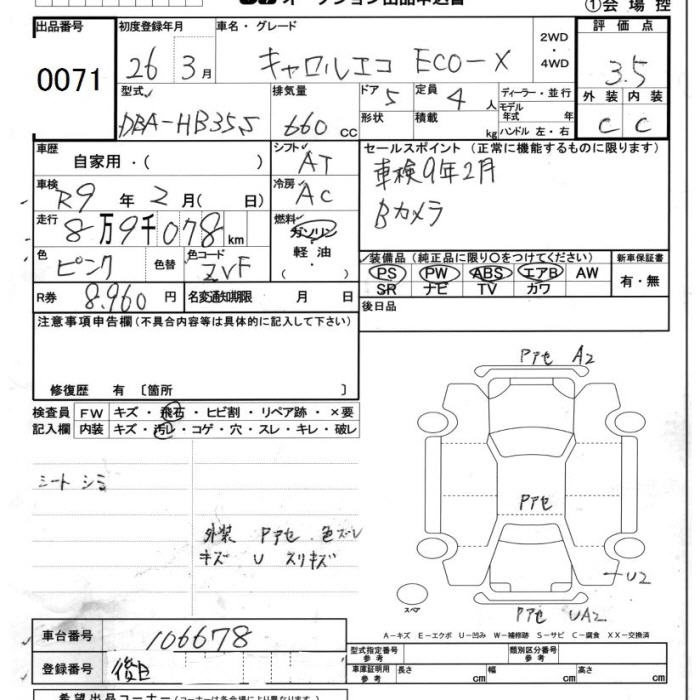 オークション出品申込書
①会場控
出品番号 0071
初度登録年月 26 3月
車名・グレード キャロルエコ ECO-X
2WD・4WD
評価点 3.5
型式 DBA-HB35S
排気量 660cc
ドア 5
定員 4人
形状
積載 kg
ディーラー・並行
モデル年式 年
ハンドル 左・右
外装 C
内装 C
車歴 自家用・( )
シフト AT
車検 R9年2月( 日)
冷房 AC
走行 8万9千078km
燃料 ガソリン・軽油・( )
色 ピンク
色替
色コード ZVF
R券 8,960円
名変通知期限 月 日
セールスポイント(正常に機能するものに限ります)
車検9年2月
Bカメラ
装備品(純正品に限り○をつけてください)
PS PW ABS エアB AW
SR ナビ TV カワ
新車保証書 有・無
後日品
注意事項申告欄(不具合内容等は具体的に記入して下さい)
修復歴 有 〔箇所 〕
検査員記入欄
FW キズ・飛石・ヒビ割・リペア跡・×要
内装 キズ・汚レ・コゲ・穴・スレ・キレ・破レ
シート シミ
外装 Pアセ 色ズレ
キズ U スリキズ
Pアセ A2
Pアセ
U2
スペア
Pアセ UA2
A-キズ E-エクボ U-凹み W-補修跡 S-サビ C-腐食 XX-交換済
車台番号 106678
登録番号 後日
型式指定番号 参考
類別区分番号 参考
車庫証明用 参考 長さ cm 幅 cm 高さ cm
希望出品コーナー(コーナーは各会場により異なります)